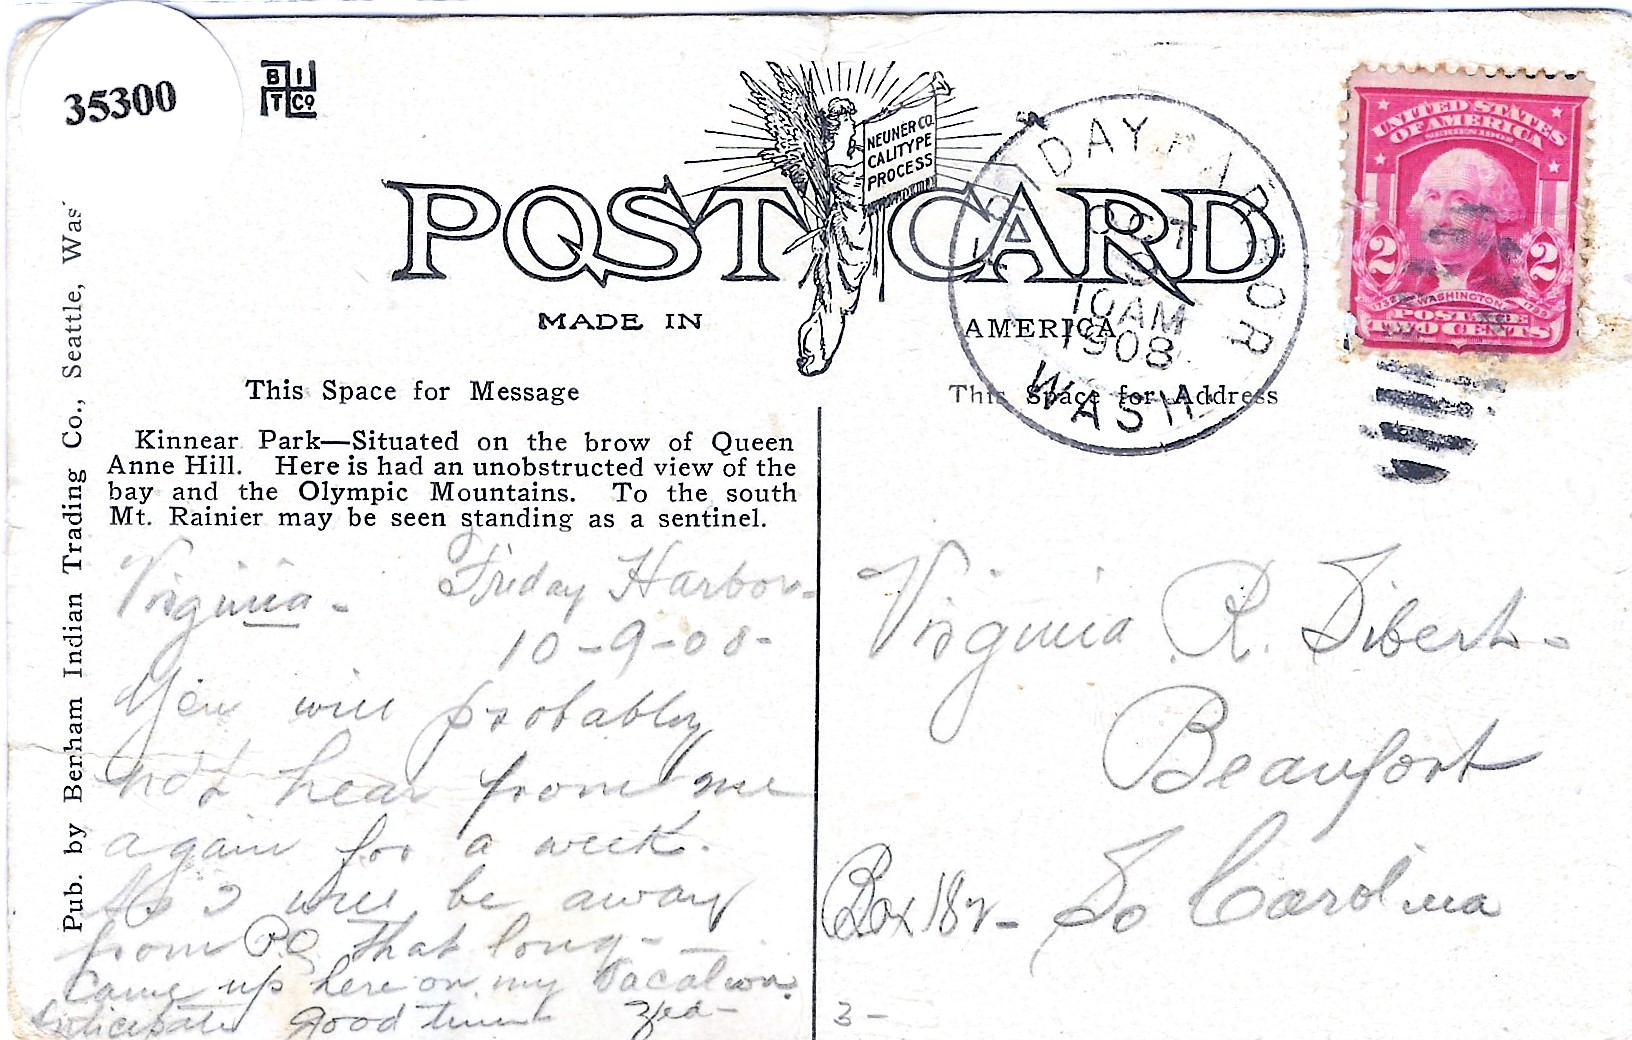 35300
B I
T Co
NEUNER CO.
CALITYPE
PROCESS
POST CARD
MADE IN AMERICA
FRIDAY HARBOR
OCT
10AM
1908
WASH.
UNITED STATES
OF AMERICA
SERIES 1902
2 2
1732 WASHINGTON 1799
POSTAGE
TWO CENTS
This Space for Message
This Space for Address
Kinnear Park—Situated on the brow of Queen
Anne Hill. Here is had an unobstructed view of the
bay and the Olympic Mountains. To the south
Mt. Rainier may be seen standing as a sentinel.
Pub. by Benham Indian Trading Co., Seattle, Was
Virginia - Friday Harbor-
10-9-08-
You will probably
not hear from me
again for a week.
As I will be away
from P.O. that long-
Came up here on my vacation.
Anticipate good time Zed-
Virginia R. Sibert-
Beaufort
Box 182- So Carolina
3-